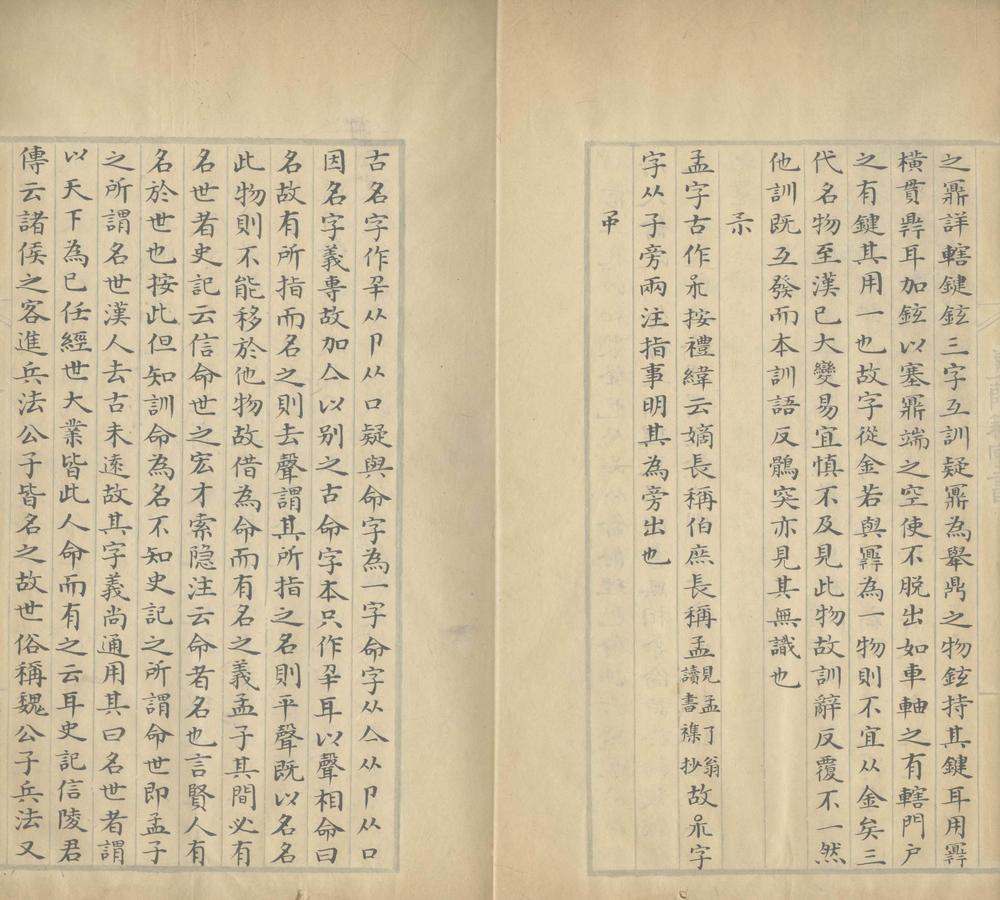 之鼏詳轄鍵鉉三字互訓疑鼏為舉鼎之物鉉持其鍵耳用鼏
橫貫鼎耳加鉉以塞鼏端之空使不脫出如車軸之有轄門戶
之有鍵其用一也故字從金若與鼏為一物則不宜从金矣三
代名物至漢已大變易宜慎不及見此物故訓辭反覆不一然
他訓既互發而本訓語反鶻突亦見其無識也
孟字古作按禮緯云嫡長稱伯庶長稱孟見孟了翁讀書襍抄故字
字从子旁兩注指事明其為旁出也
古名字作从卩从口疑與命字為一字命字从亼从卩从口
因名字義專故加亼以別之古命字本只作耳以聲相命曰
名故有所指而名之則去聲謂其所指之名則平聲既以名名
此物則不能移於他物故借為命而有名之義孟子其間必有
名世者史記云信命世之宏才索隐注云命者名也言賢人有
名於世也按此但知訓命為名不知史記之所謂命世即孟子
之所謂名世漢人去古未逺故其字義尚通用其曰名世者謂
以天下為已任經世大業皆此人命而有之云耳史記信陵君
傳云諸侯之客進兵法公子皆名之故世俗稱魏公子兵法又